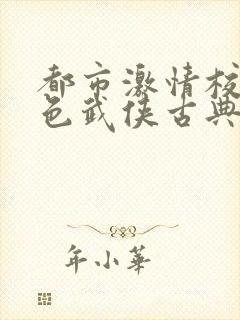 都市激情校
色武侠古典
年小華